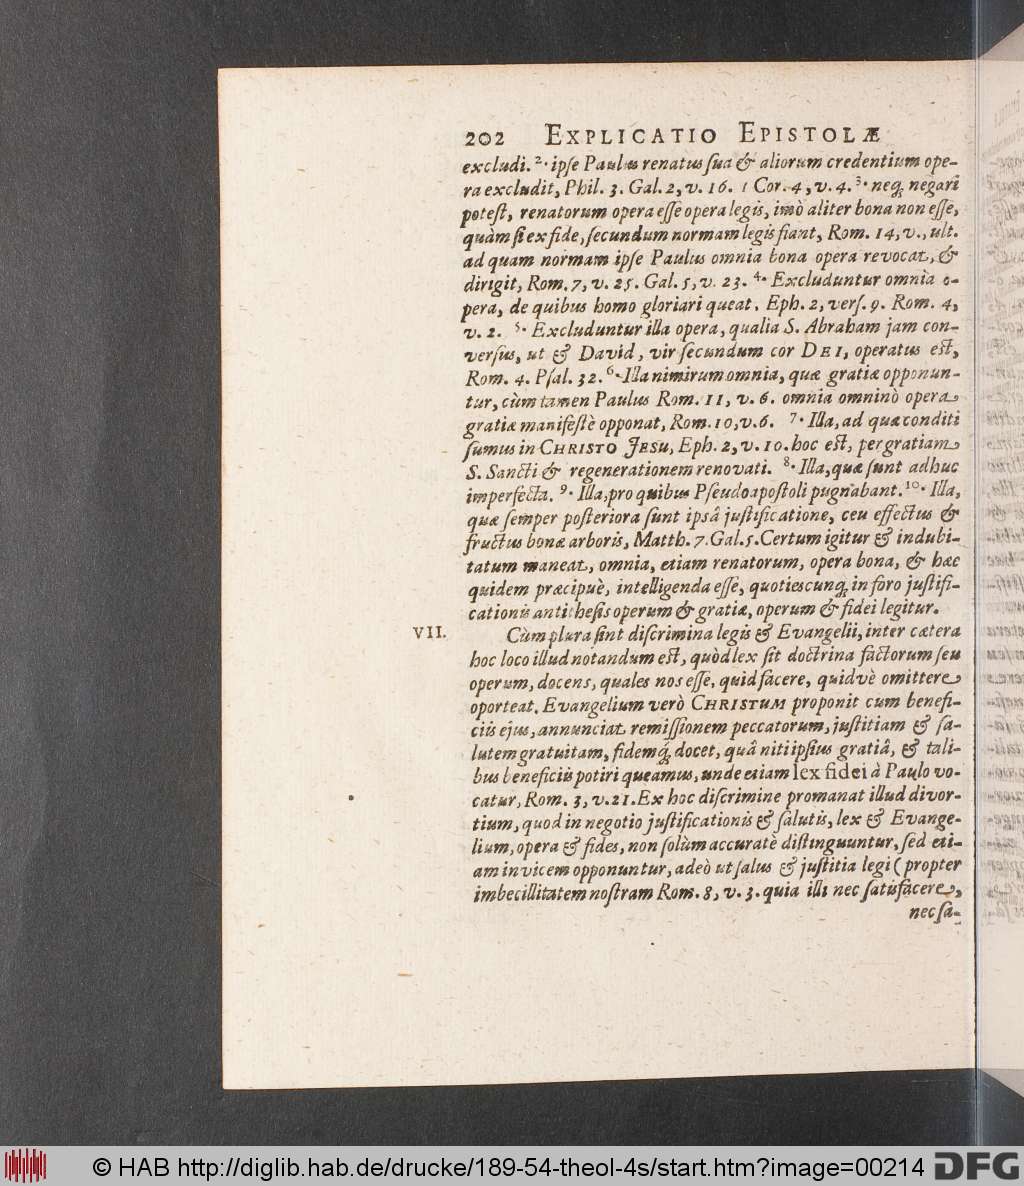 202 EXPLICATIO EPISTOLÆ
excludi. 2. ipſe Paulus renatus ſua & aliorum credentium ope-
ra excludit, Phil. 3. Gal. 2, v. 16. 1 Cor. 4, v. 4. 3. neq; negari
poteſt, renatorum opera eſſe opera legis, imò aliter bona non eſſe,
quàm ſi ex fide, ſecundum normam legis fiant, Rom. 14, v., ult.
ad quam normam ipſe Paulus omnia bona opera revocat, &
dirigit, Rom. 7, v. 25. Gal. 5, v. 23. 4. Excluduntur omnia o-
pera, de quibus homo gloriari queat, Eph. 2, verſ. 9. Rom. 4,
v. 2. 5. Excluduntur illa opera, qualia S. Abraham jam con-
verſus, ut & David, vir ſecundum cor DEI, operatus eſt,
Rom. 4. Pſal. 32. 6. Illa nimirum omnia, quæ gratiæ opponun-
tur, cùm tamen Paulus Rom. 11, v. 6. omnia omninò opera
gratiæ manifeſtè opponat, Rom. 10, v. 6. 7. Illa, ad quæ conditi
ſumus in CHRISTO JESU, Eph. 2, v. 10. hoc eſt, per gratiam
S. Sancti & regenerationem renovati. 8. Illa, quæ ſunt adhuc
imperfecta. 9. Illa, pro quibus Pſeudoapoſtoli pugnabant. 10. Illa,
quæ ſemper poſteriora ſunt ipsâ juſtificatione, ceu effectus &
fructus bonæ arboris, Matth. 7. Gal. 5. Certum igitur & indubi-
tatum maneat, omnia, etiam renatorum, opera bona, & hæc
quidem præcipuè, intelligenda eſſe, quotiescunq; in foro juſtifi-
cationis antitheſis operum & gratiæ, operum & fidei legitur.
VII. Cùm plura ſint diſcrimina legis & Evangelii, inter cætera
hoc loco illud notandum eſt, quòd lex ſit doctrina factorum ſeu
operum, docens, quales nos eſſe, quid facere, quidvè omittere
oporteat. Evangelium verò CHRISTUM proponit cum benefi-
ciis ejus, annunciat remiſſionem peccatorum, juſtitiam & ſa-
lutem gratuitam, fidemq́; docet, quâ niti ipſius gratiâ, & tali-
bus beneficiis potiri queamus, unde etiam lex fidei à Paulo vo-
catur, Rom. 3, v. 21. Ex hoc diſcrimine promanat illud divor-
tium, quod in negotio juſtificationis & ſalutis, lex & Evange-
lium, opera & fides, non ſolùm accuratè diſtinguuntur, ſed eti-
am invicem opponuntur, adeò ut ſalus & juſtitia legi (propter
imbecillitatem noſtram Rom. 8, v. 3. quia illi nec ſatisfacere,
nec ſa-
© HAB http://diglib.hab.de/drucke/189-54-theol-4s/start.htm?image=00214
DFG